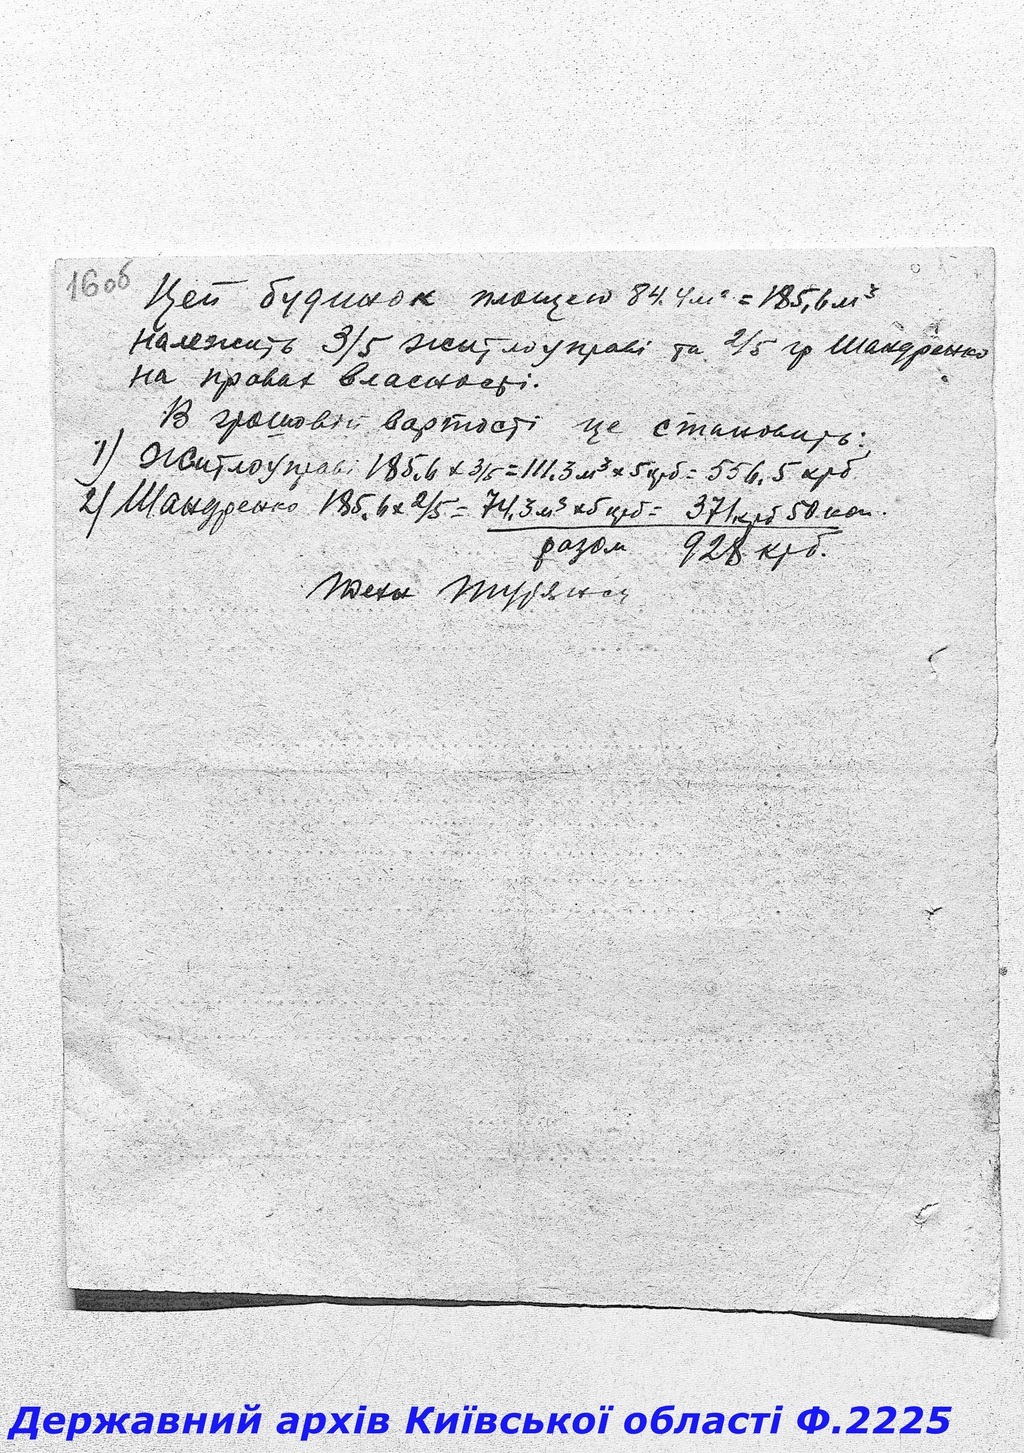 16 об
Цей будинок площею 84.4 м² = 185,6 м³
належить 3/5 житлоуправі та 2/5 гр Шандренко
на правах власності.
В грошовій вартості це становить:
1) Житлоуправі 185,6 x 3/5 = 111.3 м³ x 5 крб = 556,5 крб.
2) Шандренко 185,6 x 2/5 = 74,3 м³ x 5 крб = 371 крб 50 коп.
разом 928 крб.
Техн
Державний архів Київської області Ф.2225